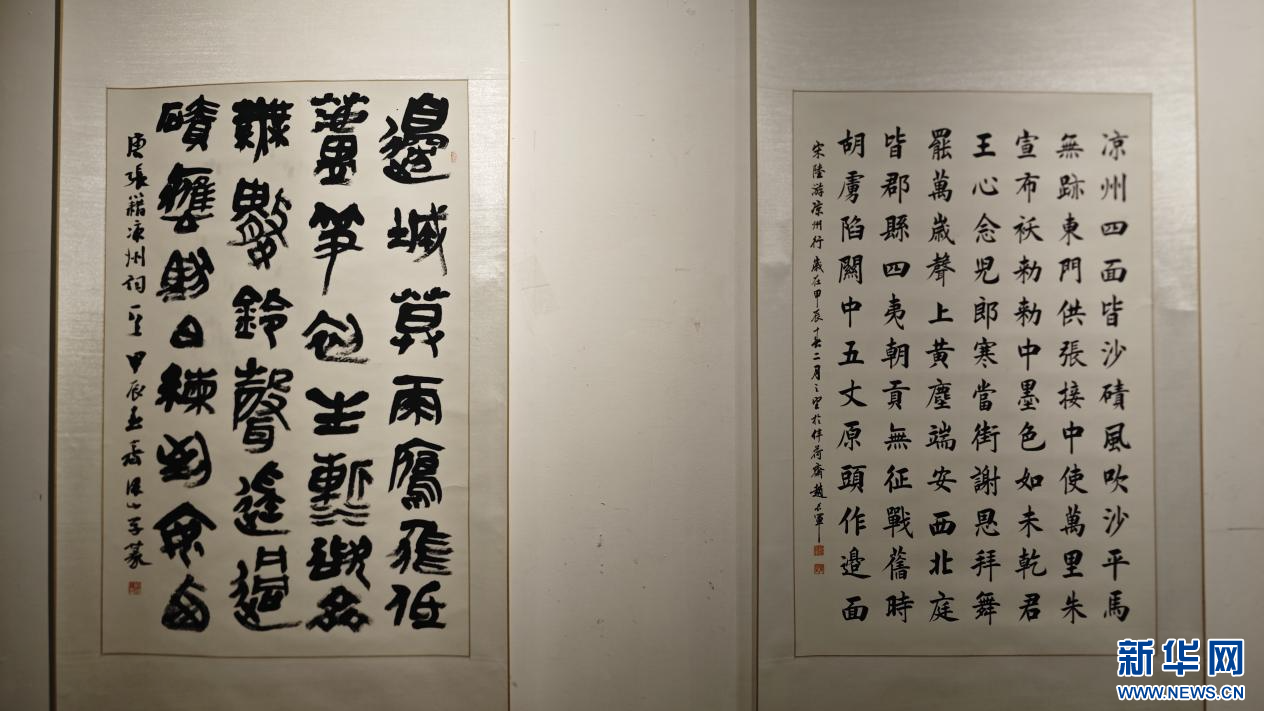 凉州四面皆沙磧風吹沙平馬
無跡東門供張接中使萬里朱
宣布袄勑勑中墨色如未乾君
王心念児郎寒當街謝恩拜舞
罷萬歲聲上黃塵端安西北庭
皆郡縣四夷朝貢無征戰舊時
胡虜陷關中五丈原頭作邊面
宋陸游凉州行 歲在甲辰十二月之望於伴荷齋趙軍
邊城莫雨鴈飛低
蘆筍初生漸欲齊
無數鈴聲遥過
磧應馱白練到安西
唐張籍凉州詞一首 甲辰
新华网
WWW.NEWS.CN